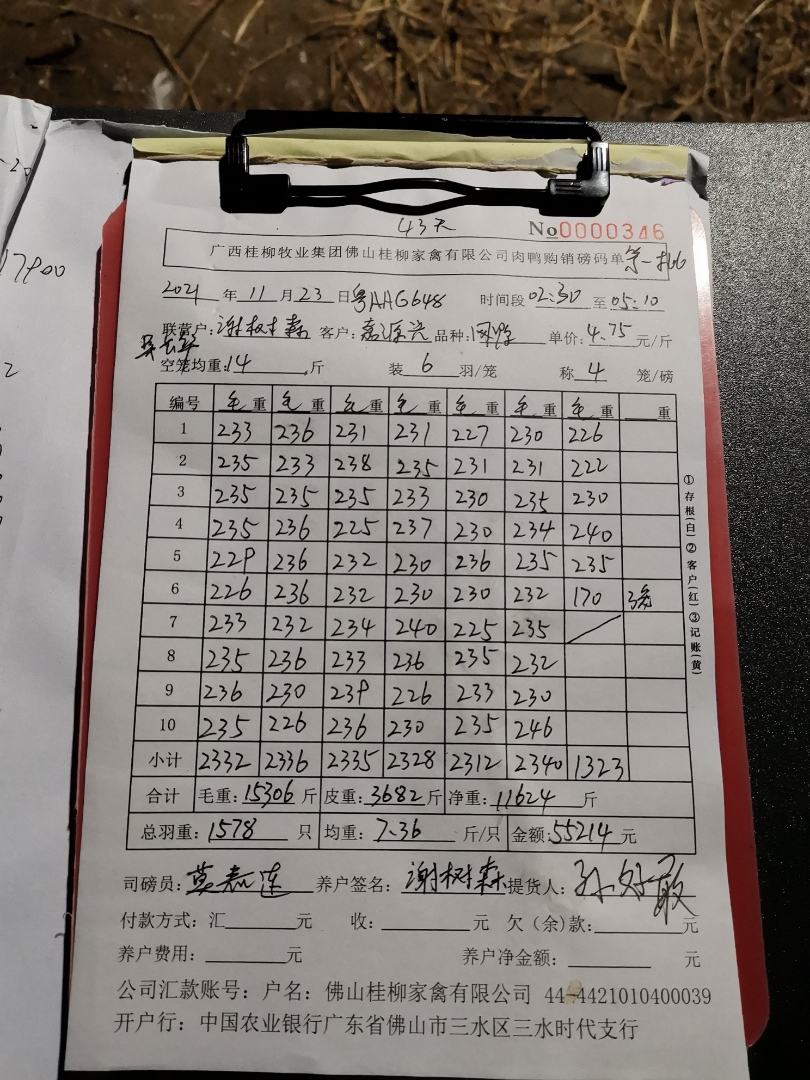 43天
No 0000346
广西桂柳牧业集团佛山桂柳家禽有限公司肉鸭购销磅码单 第一批
2021 年 11 月 23 日 粤AAG648 时间段 02:30 至 05:10
联营户: 谢树森 客户: 嘉源兴 品种: 单价: 4.75 元/斤
空笼均重: 14 斤 装 6 羽/笼 称 4 笼/磅
编号 毛重 毛重 毛重 毛重 毛重 毛重 毛重 重
1 233 236 231 231 227 230 226
2 235 233 238 235 231 231 222
3 235 235 235 233 230 235 230
4 235 236 225 237 230 234 240
5 229 236 232 230 236 235 235
6 226 236 232 230 230 232 170
7 233 232 234 240 225 235
8 235 236 233 236 235 232
9 236 230 239 226 233 230
10 235 226 236 230 235 246
小计 2332 2336 2335 2328 2312 2340 1323
合计 毛重: 15306 斤 皮重: 3682 斤 净重: 11624 斤
总羽重: 1578 只 均重: 7.36 斤/只 金额: 55214 元
司磅员: 莫嘉莲 养户签名: 谢树森 提货人: 孙好敢
付款方式: 汇 元 收: 元 欠(余)款: 元
养户费用: 元 养户净金额: 元
公司汇款账号: 户名: 佛山桂柳家禽有限公司 44-4421010400039
开户行: 中国农业银行广东省佛山市三水区三水时代支行
①存根(白)②客户(红)③记账(黄)